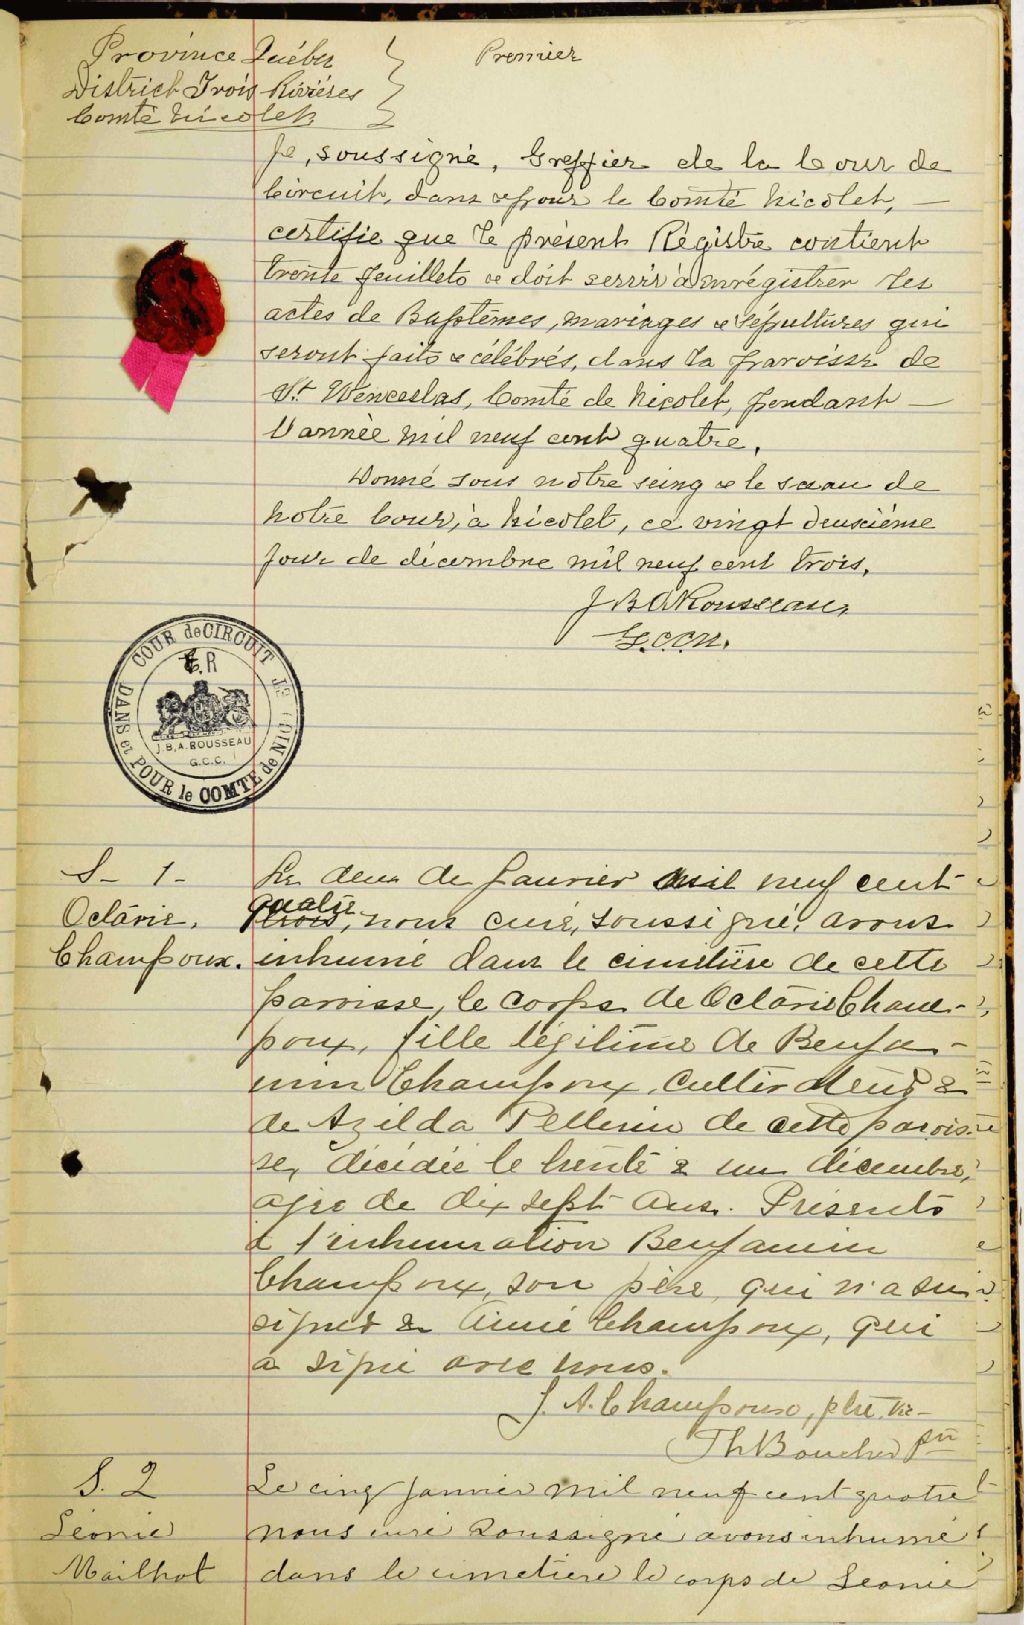 Province Québec
District Trois-Rivières
Comté Nicolet
Premier
Je, soussigné, Greffier de la Cour de
Circuit, dans & pour le Comté Nicolet, —
certifie que le présent Régistre contient
trente feuillets & doit servir à enrégistrer les
actes de Baptêmes, mariages & sépultures qui
seront faits & célébrés, dans la paroisse de
St Wenceslas, Comté de Nicolet, pendant —
l'année mil neuf cent quatre.
Donné sous notre seing & le sceau de
notre Cour, à Nicolet, ce vingt deuxième
jour de décembre mil neuf cent trois.
J B A Rousseau,
G.C.C.N.
COUR de CIRCUIT
DANS et POUR le COMTE de NIC
E.R
J.B.A. ROUSSEAU
G.C.C.
S- 1-
Octavie,
Champoux.
Le deux de Janvier mil neuf cent
quatre
trois, nous curé, soussigné, avons
inhumé dans le cimetière de cette
paroisse, le corps de Octavie Cham-
poux, fille légitime de Benja-
min Champoux, cultivateur &
de Azilda Pellerin de cette parois-
se, décédée le trente & un décembre,
agée de dix sept ans. Présents
à l'inhumation Benjamin
Champoux, son père, qui n'a su
signer & Aimé Champoux, qui
a signé avec nous.
J. A. Champoux, ptre, vic-
Th Boucher ptr
S. 2
Léonie
Mailhot
Le cinq janvier mil neuf cent quatre
nous curé soussigné avons inhumé
dans le cimetiere le corps de Leonie